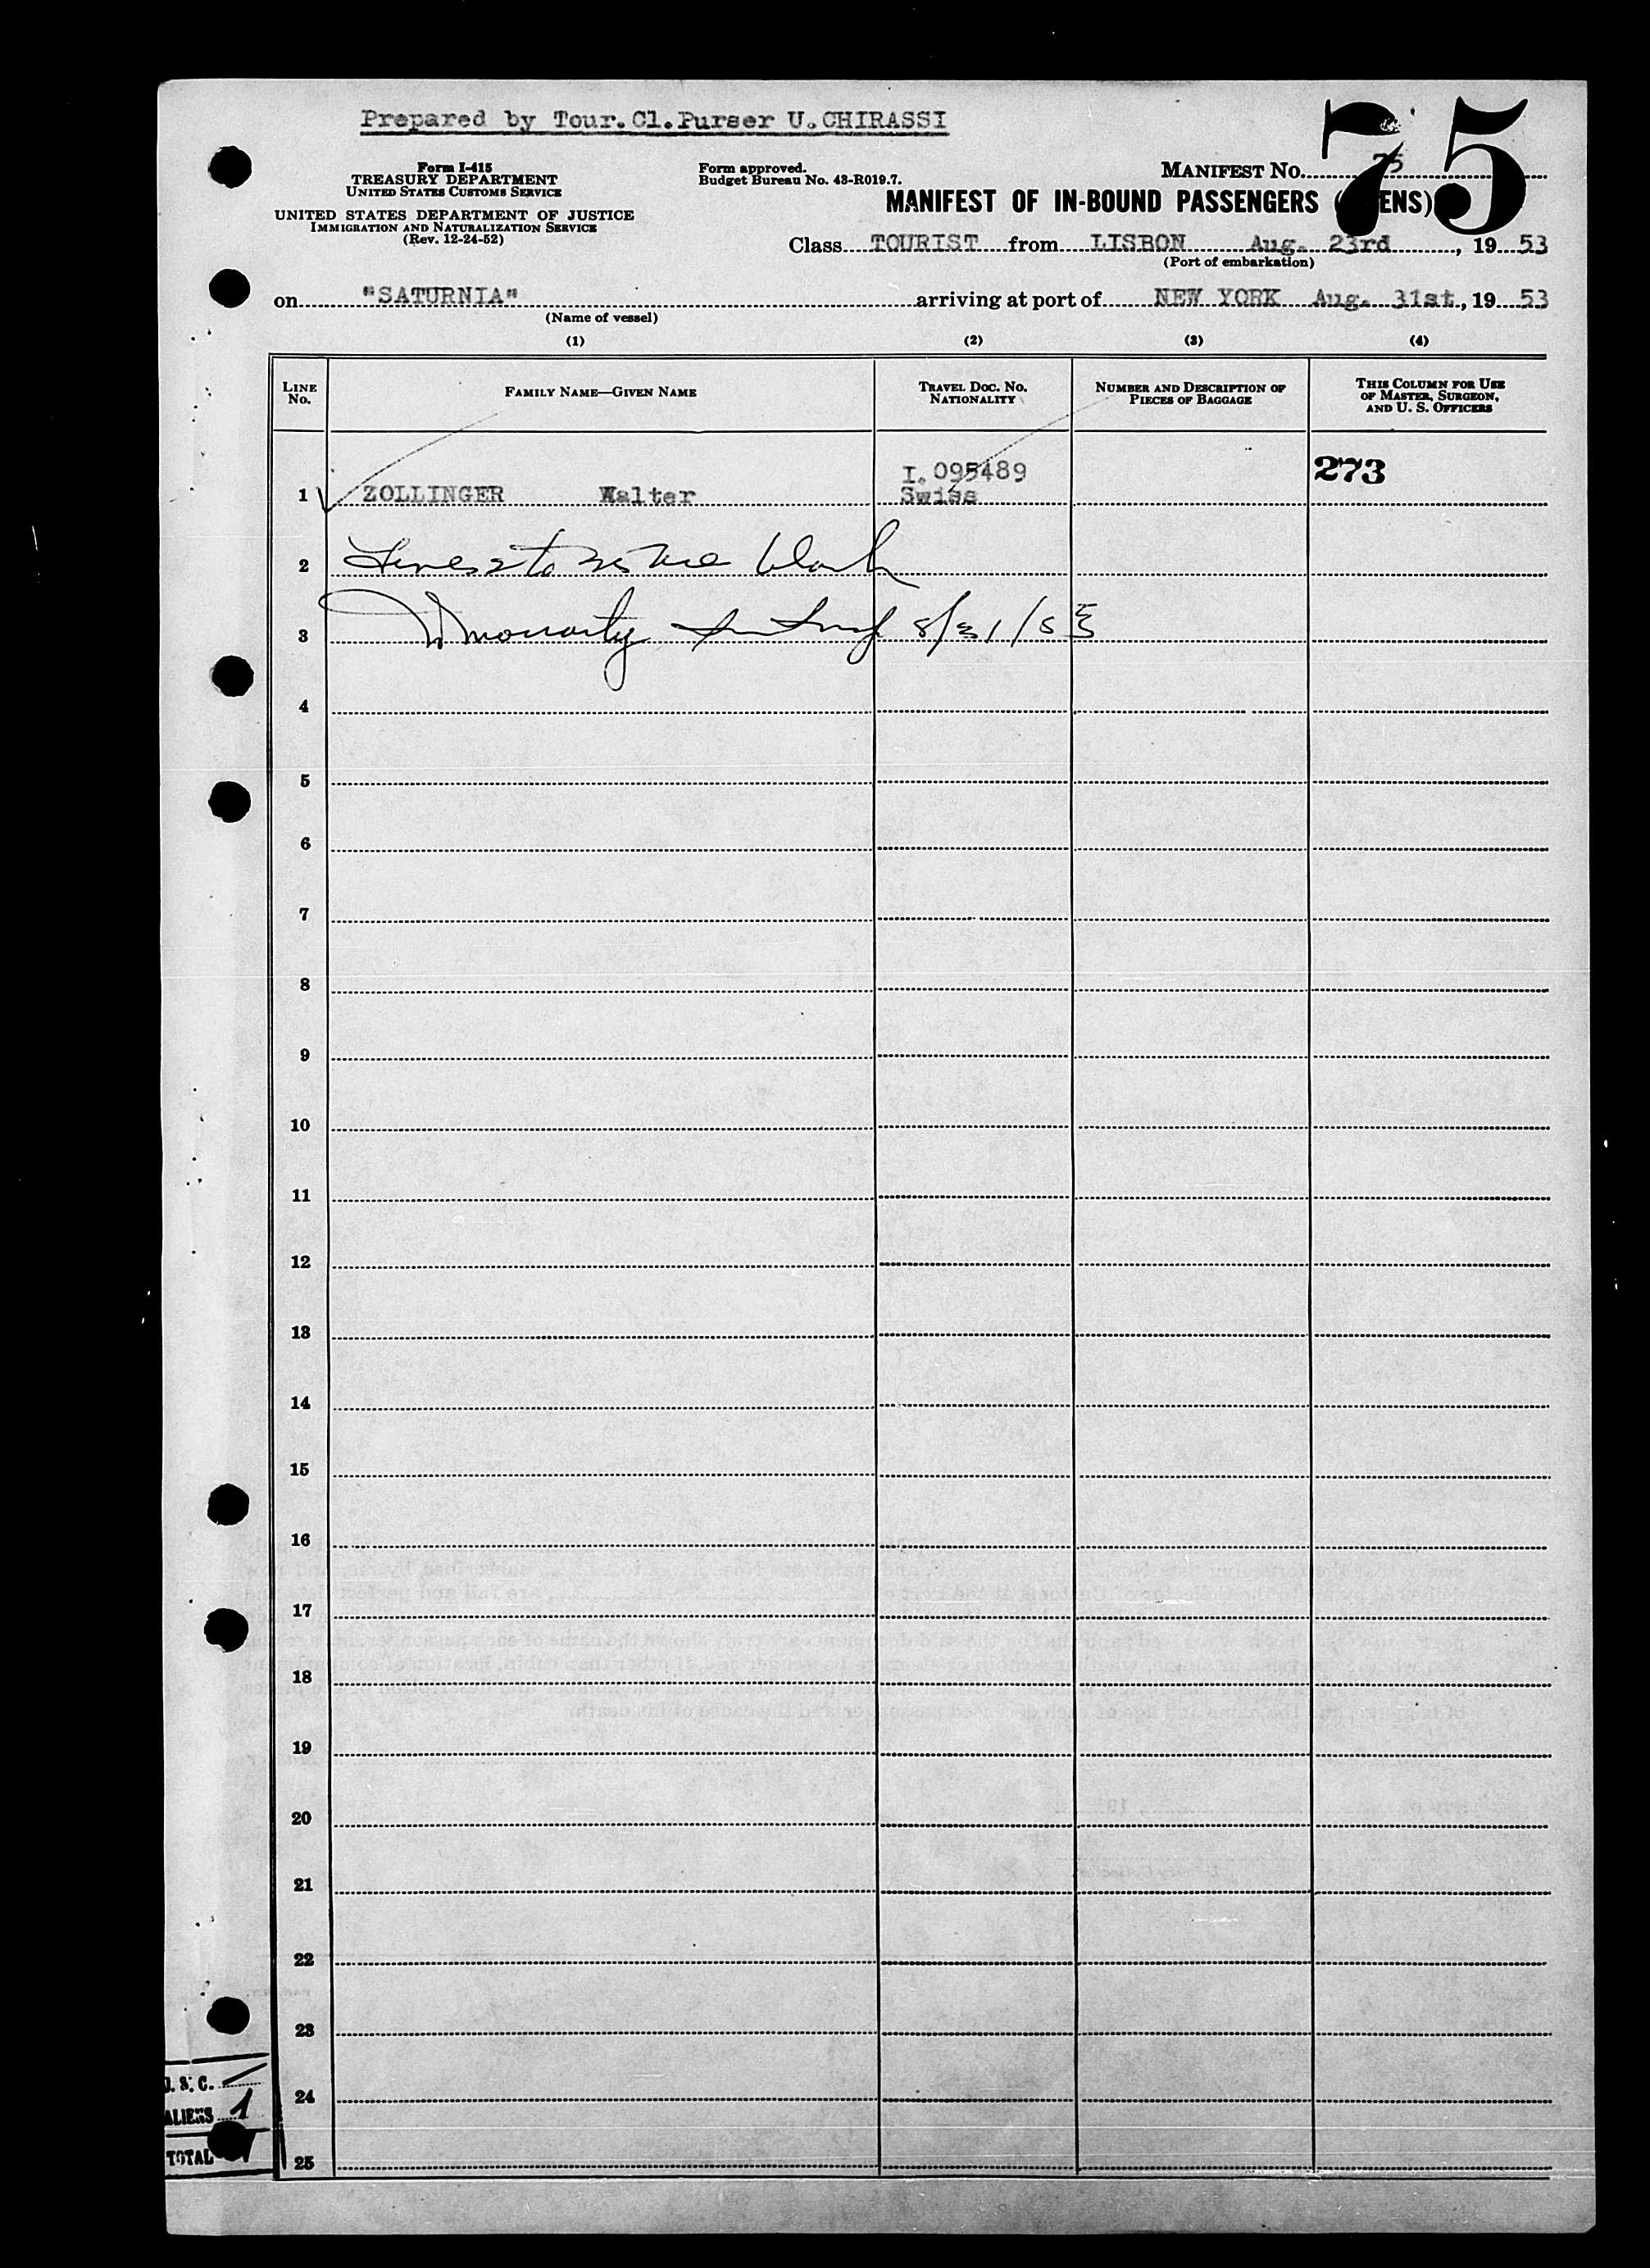 Prepared by Tour.Cl.Purser U.CHIRASSI
75
Form I-415
TREASURY DEPARTMENT
UNITED STATES CUSTOMS SERVICE
UNITED STATES DEPARTMENT OF JUSTICE
IMMIGRATION AND NATURALIZATION SERVICE
(Rev. 12-24-52)
Form approved.
Budget Bureau No. 43-R019.7.
MANIFEST No. 75
MANIFEST OF IN-BOUND PASSENGERS (ENS)
Class TOURIST from LISBON Aug. 23rd, 1953
(Port of embarkation)
on "SATURNIA" arriving at port of NEW YORK Aug. 31st, 1953
(Name of vessel)
(1) (2) (3) (4)
LINE No. FAMILY NAME—GIVEN NAME TRAVEL DOC. NO. NATIONALITY NUMBER AND DESCRIPTION OF PIECES OF BAGGAGE THIS COLUMN FOR USE OF MASTER, SURGEON, AND U. S. OFFICERS
I. 095489 273
1 ZOLLINGER Walter Swiss
2 Lines 2 to 25 are blank
3 8/31/53
4
5
6
7
8
9
10
11
12
13
14
15
16
17
18
19
20
21
22
23
U. S. C.
24
ALIENS 1
TOTAL
25